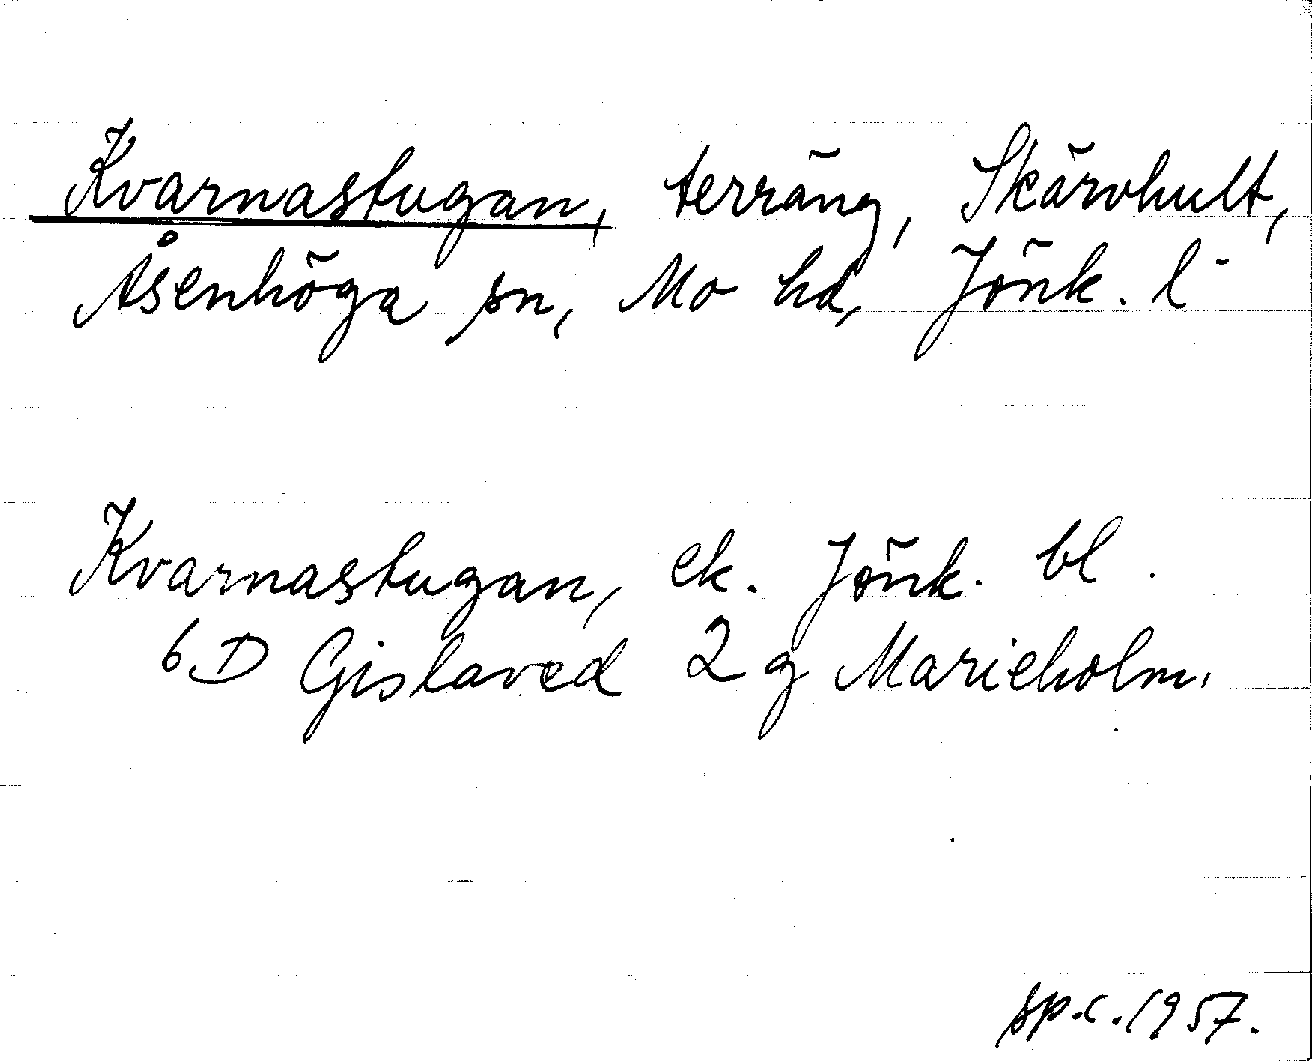 Kvarnastugan, terräng, Skärvhult,
Åsenhöga sn, Mo hd, Jönk. l-
Kvarnastugan, ek. Jönk. bl.
6D Gislaved 2 g Marieholm.
sp.c. 1957.